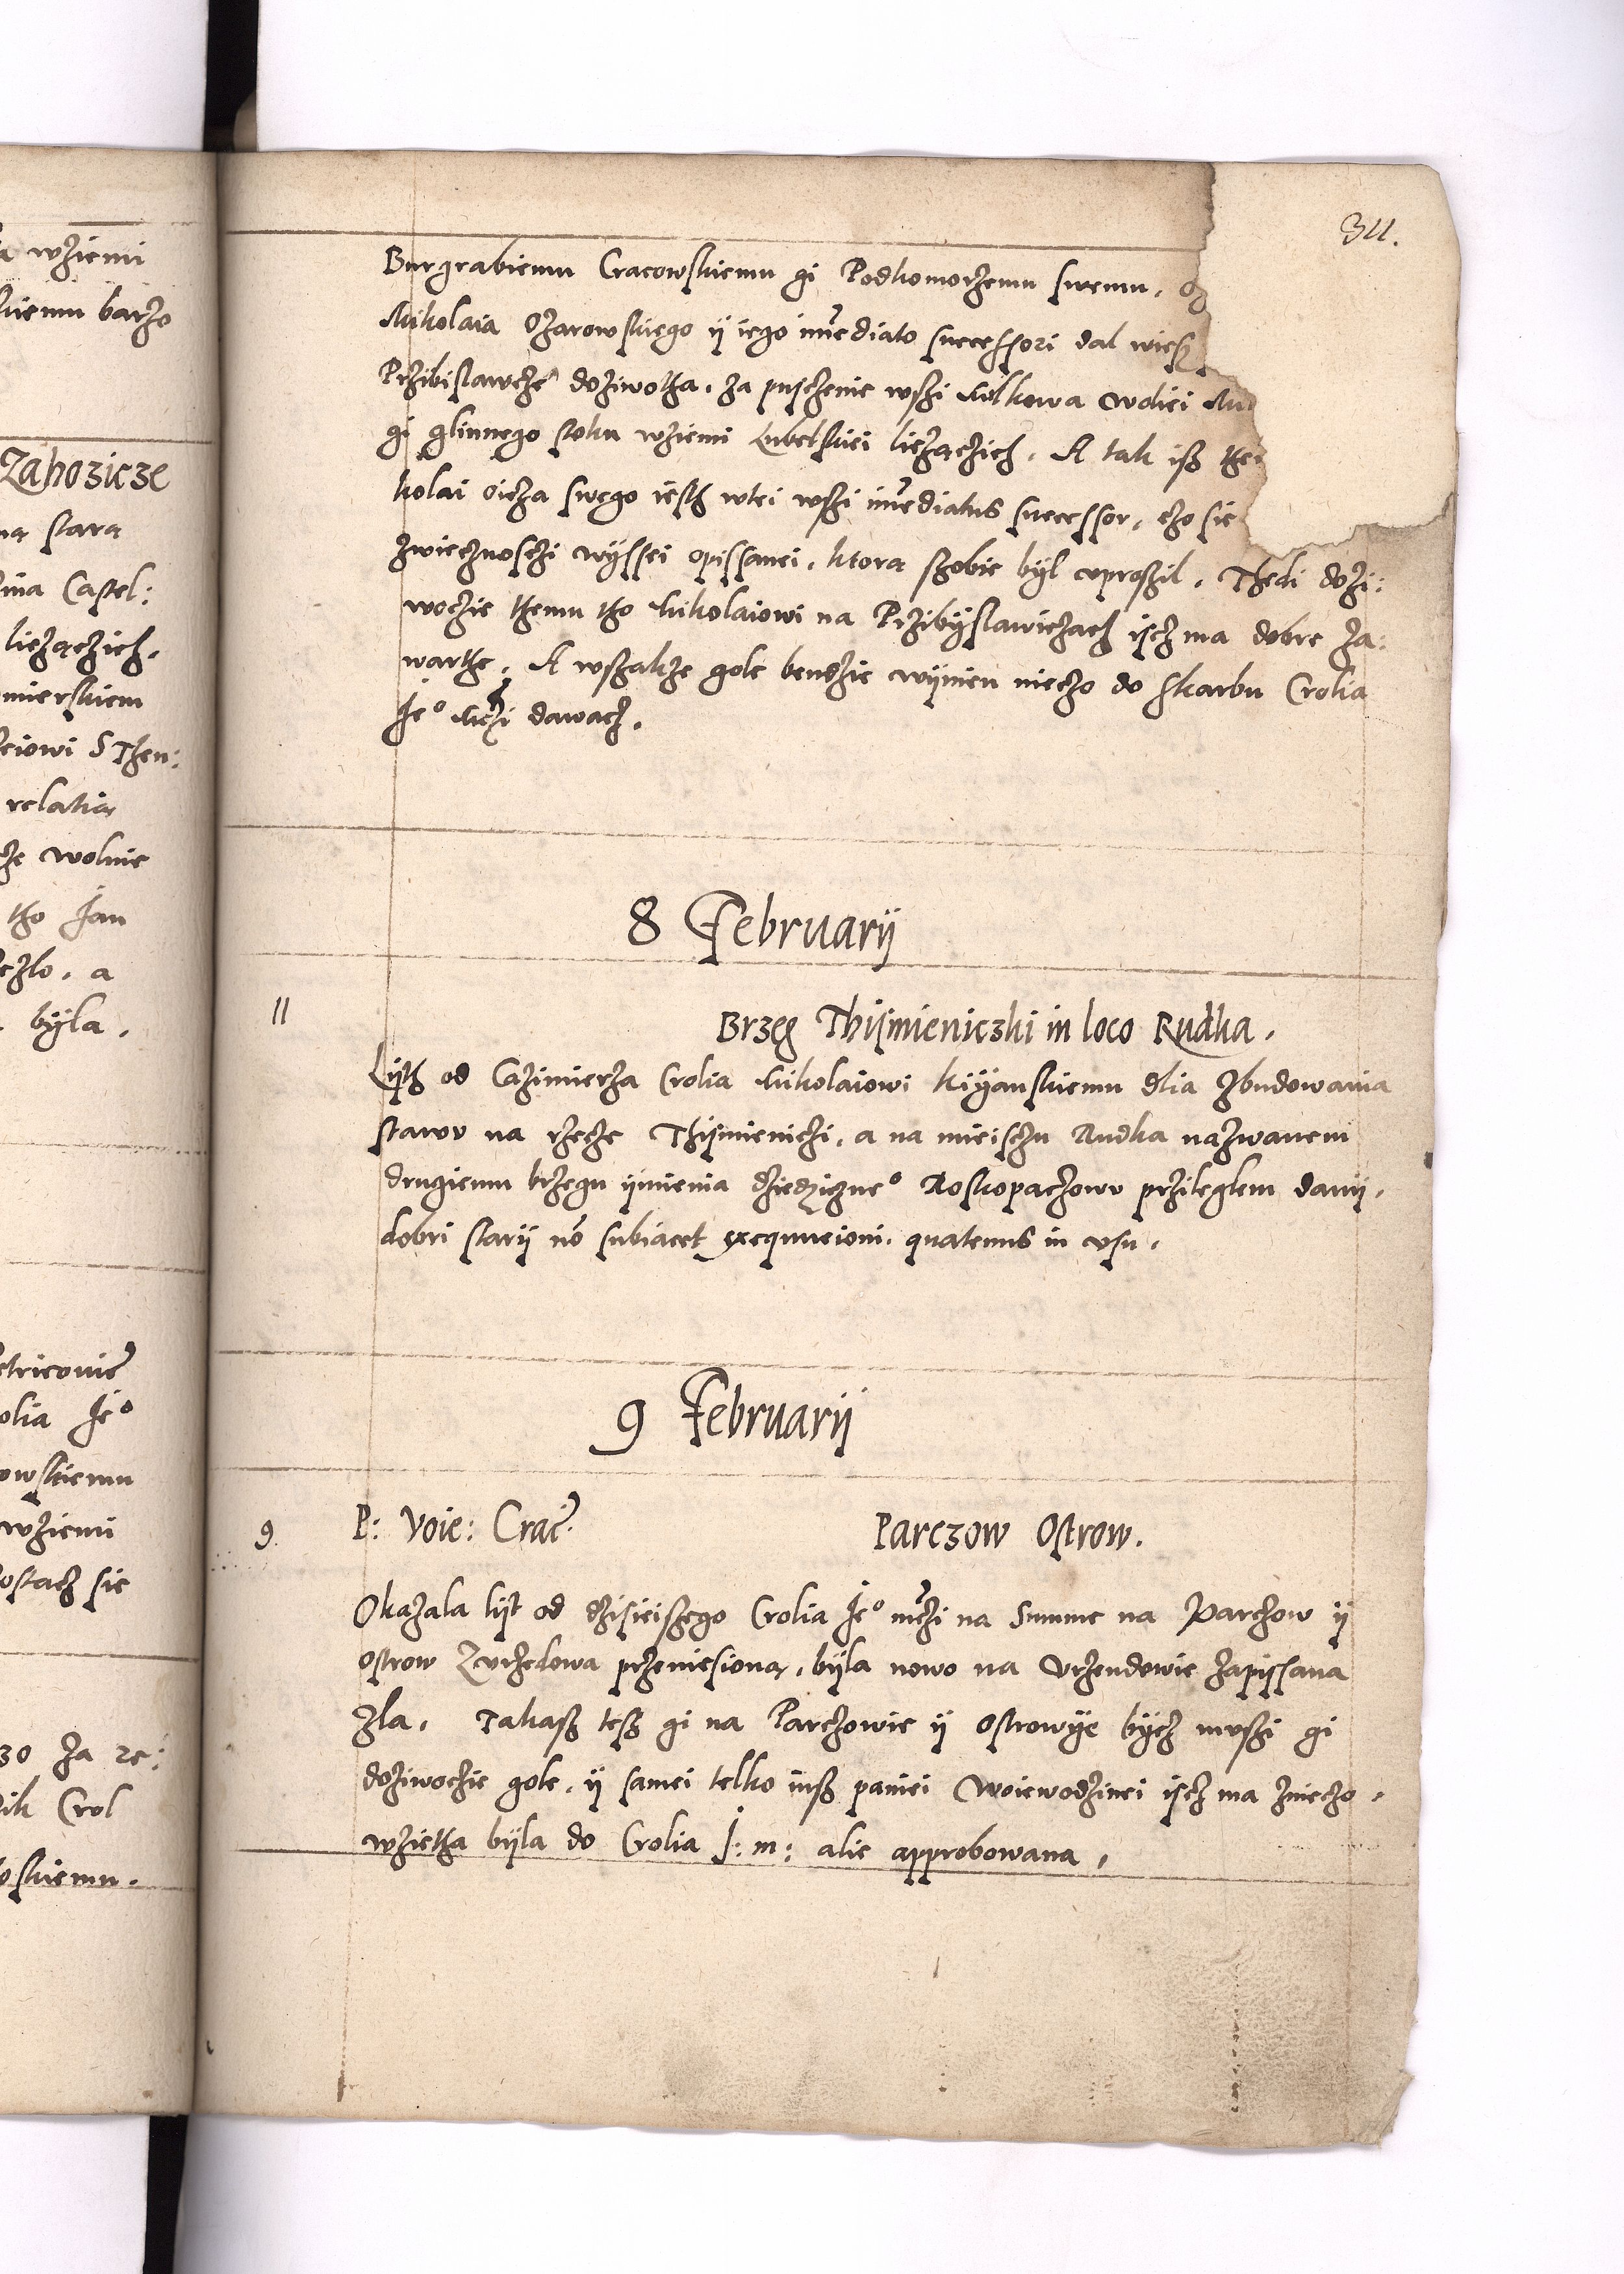 a wziemi
skiemu barzo
Zahozicze
na stara
Castel:
liezączich.
mierskiem
eiowi SThen:
relatia
ze wolnie
tho Jan
czlo. a
byla.
etriconie
olia Je°
owskiemu
wziemi
ostacz sie
30 za re:
ik Crol
skiemu.
311.
Burgrabiemu Cracowskiemu gi Podkomorzemu swemu, Oz
Mikolaia Ożarowskiego ÿ iego im̃ediato successori dal wiesz
Przibislawcze doziwotha, za pusczenie wszi Milkowa wdlici
gi glinnego stoku wziemi Lubelskiei liezączich. A tak isz then
kolai oicza swego iesth wtei wszi im̃ediatus successor, czo sie
zwiecznosczi wÿssei opissanei, ktora szobie bÿl vproszil. Thedi dozi:
woczie themu tho Mikolaiowi na Przibÿslawiczach iscz ma dobre za:
warthe. A wszakze gole bendzie wÿnien nieczo do skarbu Crolia
Je° Mczi dawacz.
8 Februarij
11
Brzeg Thijmieniczki in loco Rudka.
Lijsth od Cazimierza Crolia Mikolaiowi Kiÿanskiemu dlia zbudowania
stawv na rzecze Thijmieniczi, a na mieisczu Rudka nazwanem
drugiemu brzegu ÿmienia dziedziczne° Roskopaczowv przileglem danÿ.
dobri starij nõ subiacet exequucioni. quatenus in vsu.
9 Februarij
9.
P: Voie: Crac̃. Parczow Ostrow.
Okazala lijst od dzisieiszego Crolia Je° mc̃zi na Summe na Parczow ÿ
Ostrow Zvrzedowa przeniesiona, bÿla nowo na Vrzendowie zapissana
zla. Takasz tesz gi na Parczowie ÿ Ostrowÿe bÿcz mvszi gi
doziwoczie gole, ÿ samei telko iusz paniei Woiewodzinei iscz ma znieczo.
wzietha bÿla do Crolia J: m: alie approbowana.